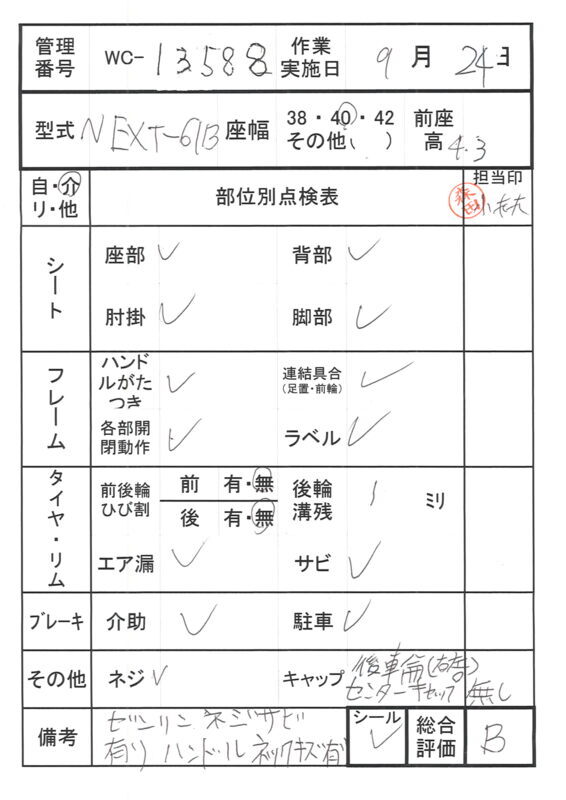 管理番号 WC-13588 作業実施日 9月24日
型式 NEXT-61B 座幅 38・40・42 その他( ) 前座高 43
自・介 リ・他 部位別点検表 担当印
森田
シート 座部 ✓ 背部 ✓
肘掛 ✓ 脚部 ✓
フレーム ハンドルがたつき ✓ 連結具合(足置・前輪) ✓
各部開閉動作 ✓ ラベル ✓
タイヤ・リム 前後輪ひび割 前 有・無 後輪溝残 1 ミリ
後 有・無
エア漏 ✓ サビ ✓
ブレーキ 介助 ✓ 駐車 ✓
その他 ネジ ✓ キャップ 後車輪(右)
センターキャップ 無し
備考 ネジサビ シール ✓ 総合評価 B
有り ハンドル キズ有